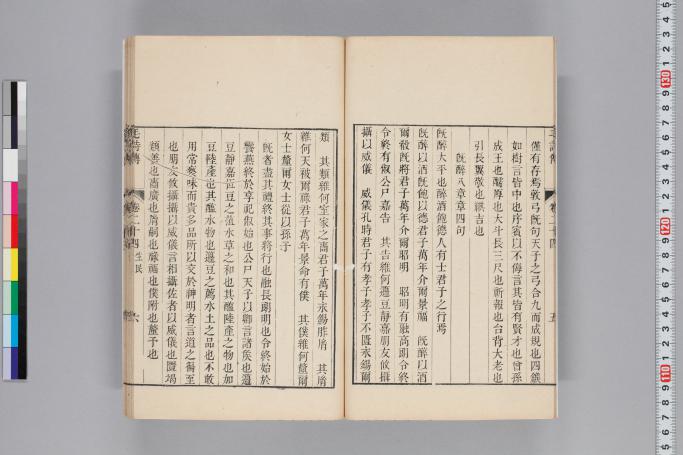 僅有存焉敦弓旣句天子之弓合九而成規也四鍭
如樹言皆中也序賓以不侮言其皆有賢才也曾孫
成王也醹厚也大斗長三尺也祈報也台背大老也
引長翼敬也祺吉也
旣醉八章章四句
旣醉大平也醉酒飽德人有士君子之行焉
旣醉以酒旣飽以德君子萬年介爾景福 旣醉以酒
爾殽旣將君子萬年介爾昭明 昭明有融高朗令終
令終有俶公尸嘉告 其告維何籩豆靜嘉朋友攸攝
攝以威儀 威儀孔時君子有孝子孝子不匱永錫爾
類 其類維何室家之壼君子萬年永錫祚胤 其胤
維何天被爾祿君子萬年景命有僕 其僕維何釐爾
女士釐爾女士從以孫子
旣者盡其禮終其事將行也融長朗明也令終始於
饗燕終於享祀俶始也公尸天子以卿言諸矦也籩
豆靜嘉恆豆之菹水草之和也其醢陸產之物也加
豆陸產也其醢水物也籩豆之薦水土之品也不敢
用常䙝味而貴多品所以交於神明者言道之徧至
也朋友攸攝攝以威儀言相攝佐者以威儀也匱竭
類善也壼廣也胤嗣也祿福也僕附也釐予也
毛詩傳 卷二十四 生民 六